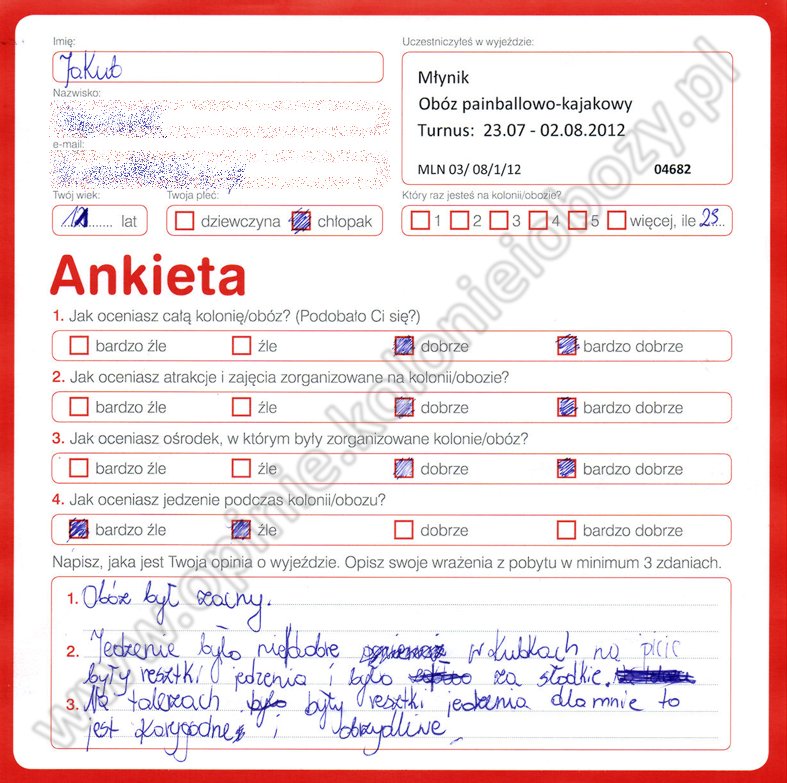 Imię:
Jakub
Uczestniczyłeś w wyjeździe:
Młynik
Obóz painballowo-kajakowy
Turnus: 23.07 - 02.08.2012
MLN 03/ 08/1/12 04682
Nazwisko:
e-mail:
Twój wiek:
lat
Twoja płeć:
dziewczyna chłopak
Który raz jesteś na kolonii/obozie?
1 2 3 4 5 więcej, ile 23
Ankieta
1. Jak oceniasz całą kolonię/obóz? (Podobało Ci się?)
bardzo źle źle dobrze bardzo dobrze
2. Jak oceniasz atrakcje i zajęcia zorganizowane na kolonii/obozie?
bardzo źle źle dobrze bardzo dobrze
3. Jak oceniasz ośrodek, w którym były zorganizowane kolonie/obóz?
bardzo źle źle dobrze bardzo dobrze
4. Jak oceniasz jedzenie podczas kolonii/obozu?
bardzo źle źle dobrze bardzo dobrze
Napisz, jaka jest Twoja opinia o wyjeździe. Opisz swoje wrażenia z pobytu w minimum 3 zdaniach.
1. Obóz był zacny.
2. Jedzenie było niedobre w kubkach na picie
były resztki jedzenia i było za słodkie.
3. Na talerzach były resztki jedzenia dla mnie to
jest karygodne i obrzydliwe
www.opinie.kolonieiobozy.pl